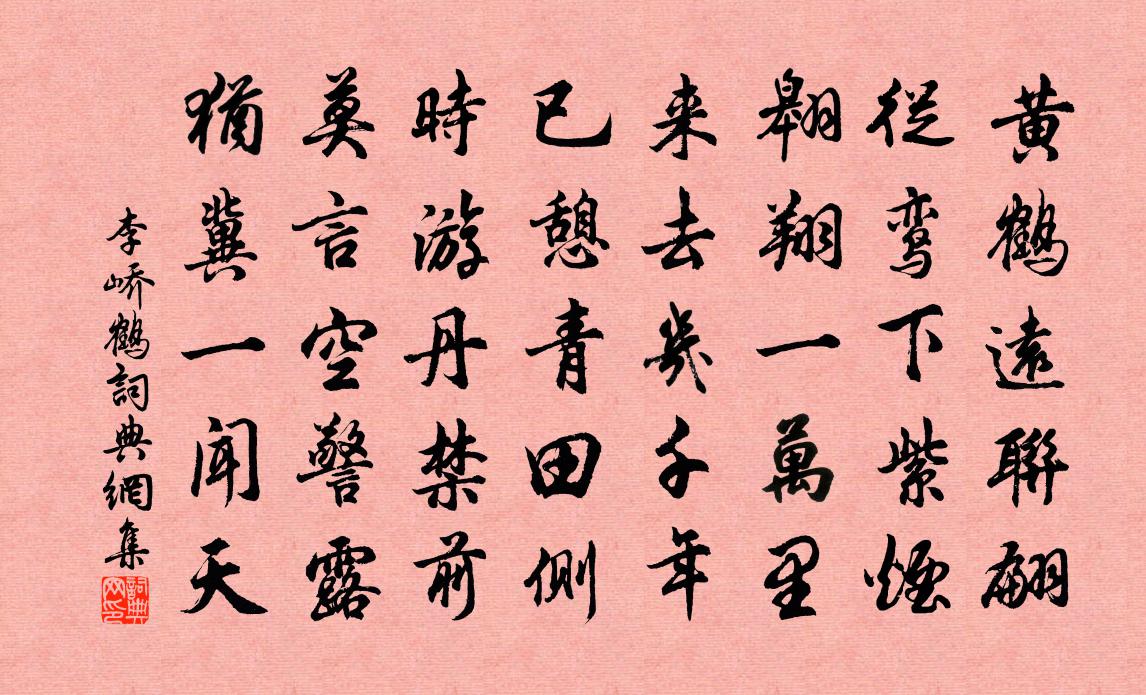 黄鶴遠聯翩
從鸞下紫煙
翱翔一萬里
来去幾千年
已憩青田側
時游丹禁前
莫言空警露
猶冀一聞天
李嶠鶴詞典網集
詞典网印